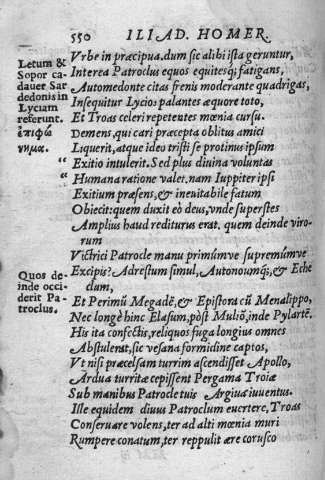 550 ILIAD. HOMER.
Letum &
Sopor ca-
dauer Sar
dedonis in
Lyciam
referunt.
ἐπιφώ
νημα.
Vrbe in præcipua. dum sic alibi ista geruntur,
Interea Patroclus equos equitesq; fatigans,
Automedonte citas frenis moderante quadrigas,
Insequitur Lycios palantes æquore toto,
Et Troas celeri repetentes mœnia cursu.
Demens, qui cari præcepta oblitus amici
Liquerit, atque ideo tristi se protinus ipsum
“ Exitio intulerit. Sed plus diuina voluntas
“ Humana ratione valet. nam Iuppiter ipsi
Exitium præsens, & ineuitabile fatum
Obiecit: quem duxit eò deus, vnde superstes
Amplius haud rediturus erat. quem deinde viro-
rum
Quos de-
inde occi-
derit Pa-
troclus.
Victrici Patrocle manu primúmve supremúmve
Excipis? Adrestum simul, Autonoumq;, & Eche
clum,
Et Perimū Megadē, & Epistora cū Menalippo,
Nec longè hinc Elasum, pòst Muliō, inde Pylartē.
His ita confectis, reliquos fuga longius omnes
Abstulerat, sic vesana formidine captos,
Vt nisi præcelsam turrim ascendisset Apollo,
Ardua turritæ cepissent Pergama Troiæ
Sub manibus Patrocle tuis Argiua iuuentus.
Ille equidem diuus Patroclum euertere, Troas
Conseruare volens, ter ad alti mœnia muri
Rumpere conatum, ter reppulit ære corusco